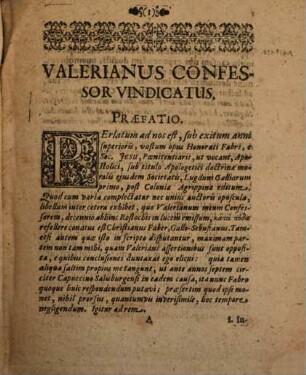 (1)
VALERIANUS CONFES-
SOR VINDICATUS.
PRÆFATIO.
PErlatum ad nos est, sub exitum anni
superioris, vastum opus Honorati Fabri, è
Soc. JESU, Pœnitentiarii, ut vocant, Apo-
stolici, sub titulo Apologetici doctrinæ mo-
ralis ejusdem Societatis, Lugduni Galliarum
primo, post Coloniæ Agrippinæ editum.
Quod cum varia complectatur nec unius auctoris opuscula,
libellum inter cetera exhibet, quo Valerianum meum Confes-
sorem, decennio abhinc Rostochii in lucem emissum,
refellere conatus est Christianus Faber, Gallo-Sebusianus. Tam-
etsi autem quæ isto in scripto disputantur, maximam par-
tem non tam mihi, quam Valeriani assertionibus sunt opposi-
ta, è quibus conclusiones duntaxat ego elicui: quia tamen
aliqua saltim propius me tangunt, ut ante annos septem circi-
ter Capucino Salisburgensi in eadem causa, ita nunc Fabro
quoque huic respondendum putavi; præsertim quod ipse mo-
net, nihil prorsus, quantumvis inverisimile, hoc tempore
negligendum. Igitur ad rem.
A I. In-